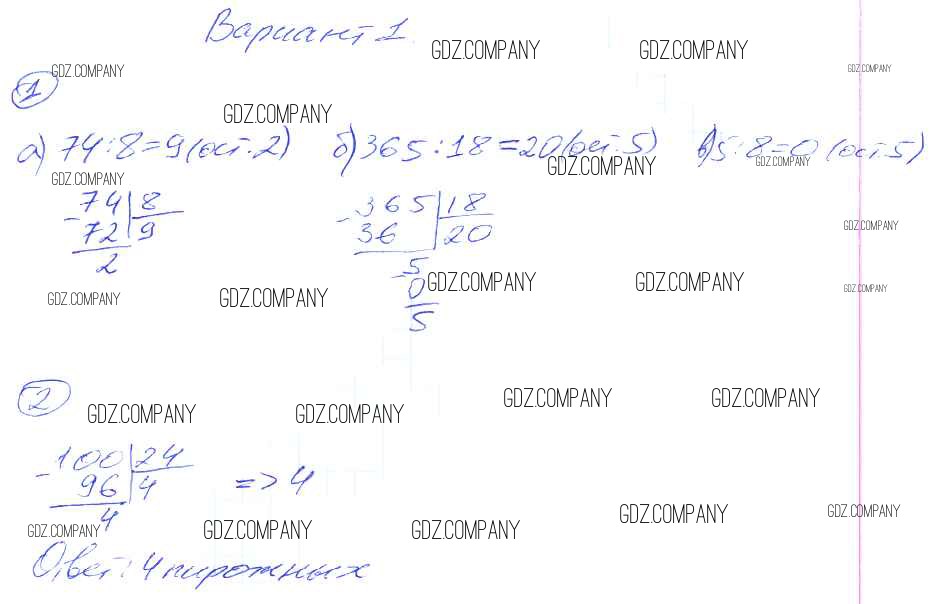 Вариант 1.
GDZ.COMPANY GDZ.COMPANY
GDZ.COMPANY GDZ.COMPANY
1
GDZ.COMPANY
а) 74:8=9(ост.2) б) 365:18=20(ост.5) в) 5:8=0 (ост.5)
GDZ.COMPANY GDZ.COMPANY
GDZ.COMPANY
- 74 | 8 - 365 | 18
GDZ.COMPANY
72 | 9 36 | 20
2 - 5
GDZ.COMPANY GDZ.COMPANY
GDZ.COMPANY GDZ.COMPANY 0 GDZ.COMPANY
5
2
GDZ.COMPANY GDZ.COMPANY GDZ.COMPANY GDZ.COMPANY
- 100 | 24
96 | 4 => 4
4
GDZ.COMPANY GDZ.COMPANY GDZ.COMPANY GDZ.COMPANY GDZ.COMPANY
Ответ: 4 пирожных